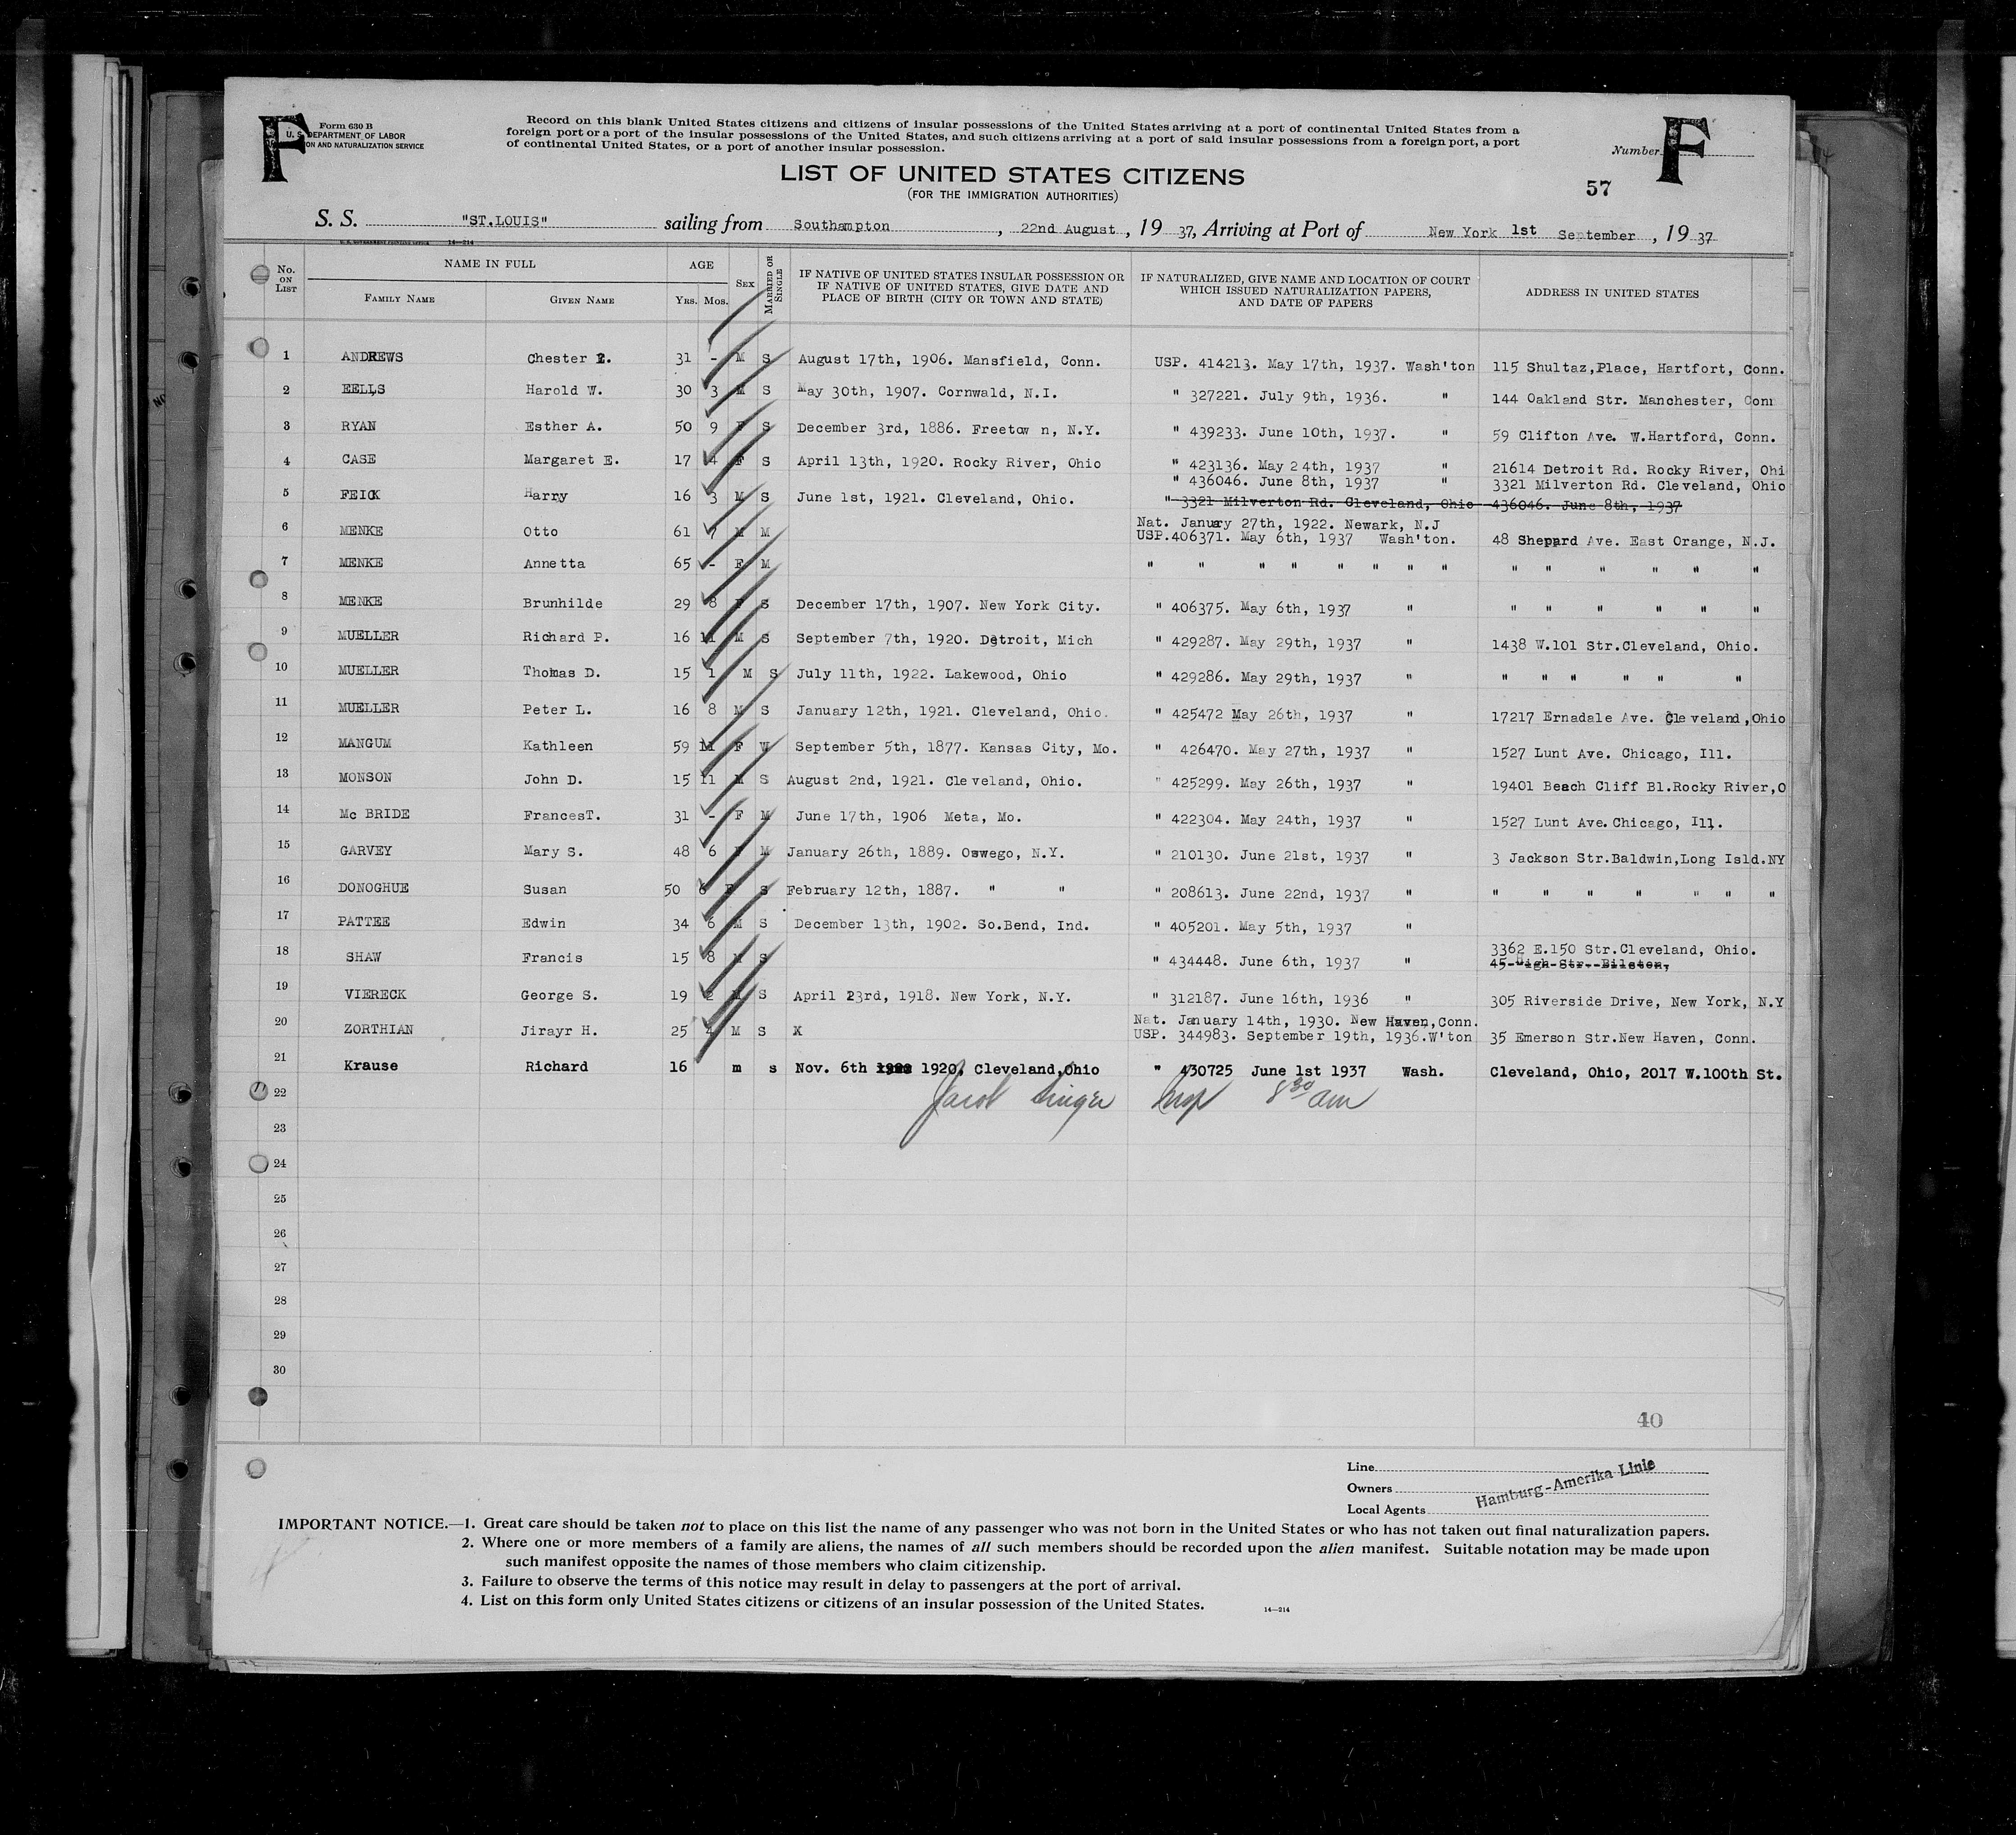 F
Form 630 B
U. S. DEPARTMENT OF LABOR
ON AND NATURALIZATION SERVICE
Record on this blank United States citizens and citizens of insular possessions of the United States arriving at a port of continental United States from a
foreign port or a port of the insular possessions of the United States, and such citizens arriving at a port of said insular possessions from a foreign port, a port
of continental United States, or a port of another insular possession.
Number
F
57
LIST OF UNITED STATES CITIZENS
(FOR THE IMMIGRATION AUTHORITIES)
S. S. "ST.LOUIS" sailing from Southampton, 22nd August, 19 37, Arriving at Port of New York 1st September, 19 37
14—214
No. ON LIST
NAME IN FULL
FAMILY NAME GIVEN NAME
AGE
YRS. MOS.
SEX
MARRIED OR SINGLE
IF NATIVE OF UNITED STATES INSULAR POSSESSION OR
IF NATIVE OF UNITED STATES, GIVE DATE AND
PLACE OF BIRTH (CITY OR TOWN AND STATE)
IF NATURALIZED, GIVE NAME AND LOCATION OF COURT
WHICH ISSUED NATURALIZATION PAPERS,
AND DATE OF PAPERS
ADDRESS IN UNITED STATES
1 ANDREWS Chester 31 - M S August 17th, 1906. Mansfield, Conn. USP. 414213. May 17th, 1937. Wash'ton 115 Shultaz,Place, Hartfort, Conn.
2 EELLS Harold W. 30 3 M S May 30th, 1907. Cornwald, N.I. " 327221. July 9th, 1936. " 144 Oakland Str. Manchester, Conn
3 RYAN Esther A. 50 9 F S December 3rd, 1886. Freetow n, N.Y. " 439233. June 10th, 1937. " 59 Clifton Ave. W.Hartford, Conn.
4 CASE Margaret E. 17 4 F S April 13th, 1920. Rocky River, Ohio " 423136. May 24th, 1937 " 21614 Detroit Rd. Rocky River, Ohi
" 436046. June 8th, 1937 " 3321 Milverton Rd. Cleveland, Ohio
5 FEICK Harry 16 3 M S June 1st, 1921. Cleveland, Ohio. " 3321 Milverton Rd. Cleveland, Ohio 436046. June 8th, 1937
Nat. Janury 27th, 1922. Newark, N.J
6 MENKE Otto 61 7 M M USP.406371. May 6th, 1937 Wash'ton. 48 Sheppard Ave. East Orange, N.J.
7 MENKE Annetta 65 - F M " " " " " " " " " " " " " "
8 MENKE Brunhilde 29 8 F S December 17th, 1907. New York City. " 406375. May 6th, 1937 " " " " " " "
9 MUELLER Richard P. 16 11 M S September 7th, 1920. Detroit, Mich " 429287. May 29th, 1937 " 1438 W.101 Str.Cleveland, Ohio.
10 MUELLER Thomas D. 15 1 M S July 11th, 1922. Lakewood, Ohio " 429286. May 29th, 1937 " " " " " " "
11 MUELLER Peter L. 16 8 M S January 12th, 1921. Cleveland, Ohio. " 425472 May 26th, 1937 " 17217 Ernadale Ave. Cleveland,Ohio
12 MANGUM Kathleen 59 11 F W September 5th, 1877. Kansas City, Mo. " 426470. May 27th, 1937 " 1527 Lunt Ave. Chicago, Ill.
13 MONSON John D. 15 11 M S August 2nd, 1921. Cleveland, Ohio. " 425299. May 26th, 1937 " 19401 Beach Cliff Bl.Rocky River,O
14 Mc BRIDE FrancesT. 31 - F M June 17th, 1906 Meta, Mo. " 422304. May 24th, 1937 " 1527 Lunt Ave.Chicago, Ill.
15 GARVEY Mary S. 48 6 F M January 26th, 1889. Oswego, N.Y. " 210130. June 21st, 1937 " 3 Jackson Str.Baldwin,Long Isld.NY
16 DONOGHUE Susan 50 6 F S February 12th, 1887. " " " 208613. June 22nd, 1937 " " " " " " " "
17 PATTEE Edwin 34 6 M S December 13th, 1902. So.Bend, Ind. " 405201. May 5th, 1937 "
3362 E.150 Str.Cleveland, Ohio.
18 SHAW Francis 15 8 M S " 434448. June 6th, 1937 " 45 High Str. Bilston,
19 VIERECK George S. 19 2 M S April 23rd, 1918. New York, N.Y. " 312187. June 16th, 1936 " 305 Riverside Drive, New York, N.Y
Nat. January 14th, 1930. New Haven,Conn.
20 ZORTHIAN Jirayr H. 25 4 M S X USP. 344983. September 19th, 1936.W'ton 35 Emerson Str.New Haven, Conn.
21 Krause Richard 16 m s Nov. 6th 1920, Cleveland,Ohio " 430725 June 1st 1937 Wash. Cleveland, Ohio, 2017 W.100th St.
22 Jacob Singer Insp 8 30 am
23
24
25
26
27
28
29
30
40
Line
Owners
Hamburg-Amerika Linie
Local Agents
IMPORTANT NOTICE.—1. Great care should be taken not to place on this list the name of any passenger who was not born in the United States or who has not taken out final naturalization papers.
2. Where one or more members of a family are aliens, the names of all such members should be recorded upon the alien manifest. Suitable notation may be made upon
such manifest opposite the names of those members who claim citizenship.
3. Failure to observe the terms of this notice may result in delay to passengers at the port of arrival.
4. List on this form only United States citizens or citizens of an insular possession of the United States.
14—214